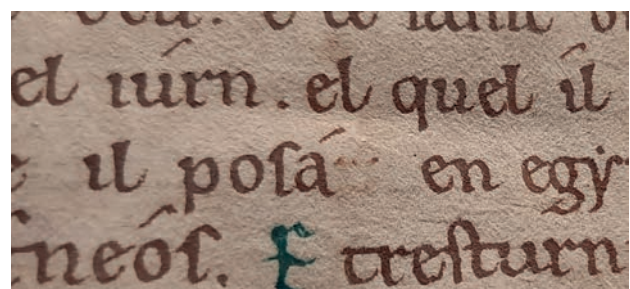 el iúrn. el quel il
il posá en egẏ
neós. E tresturn